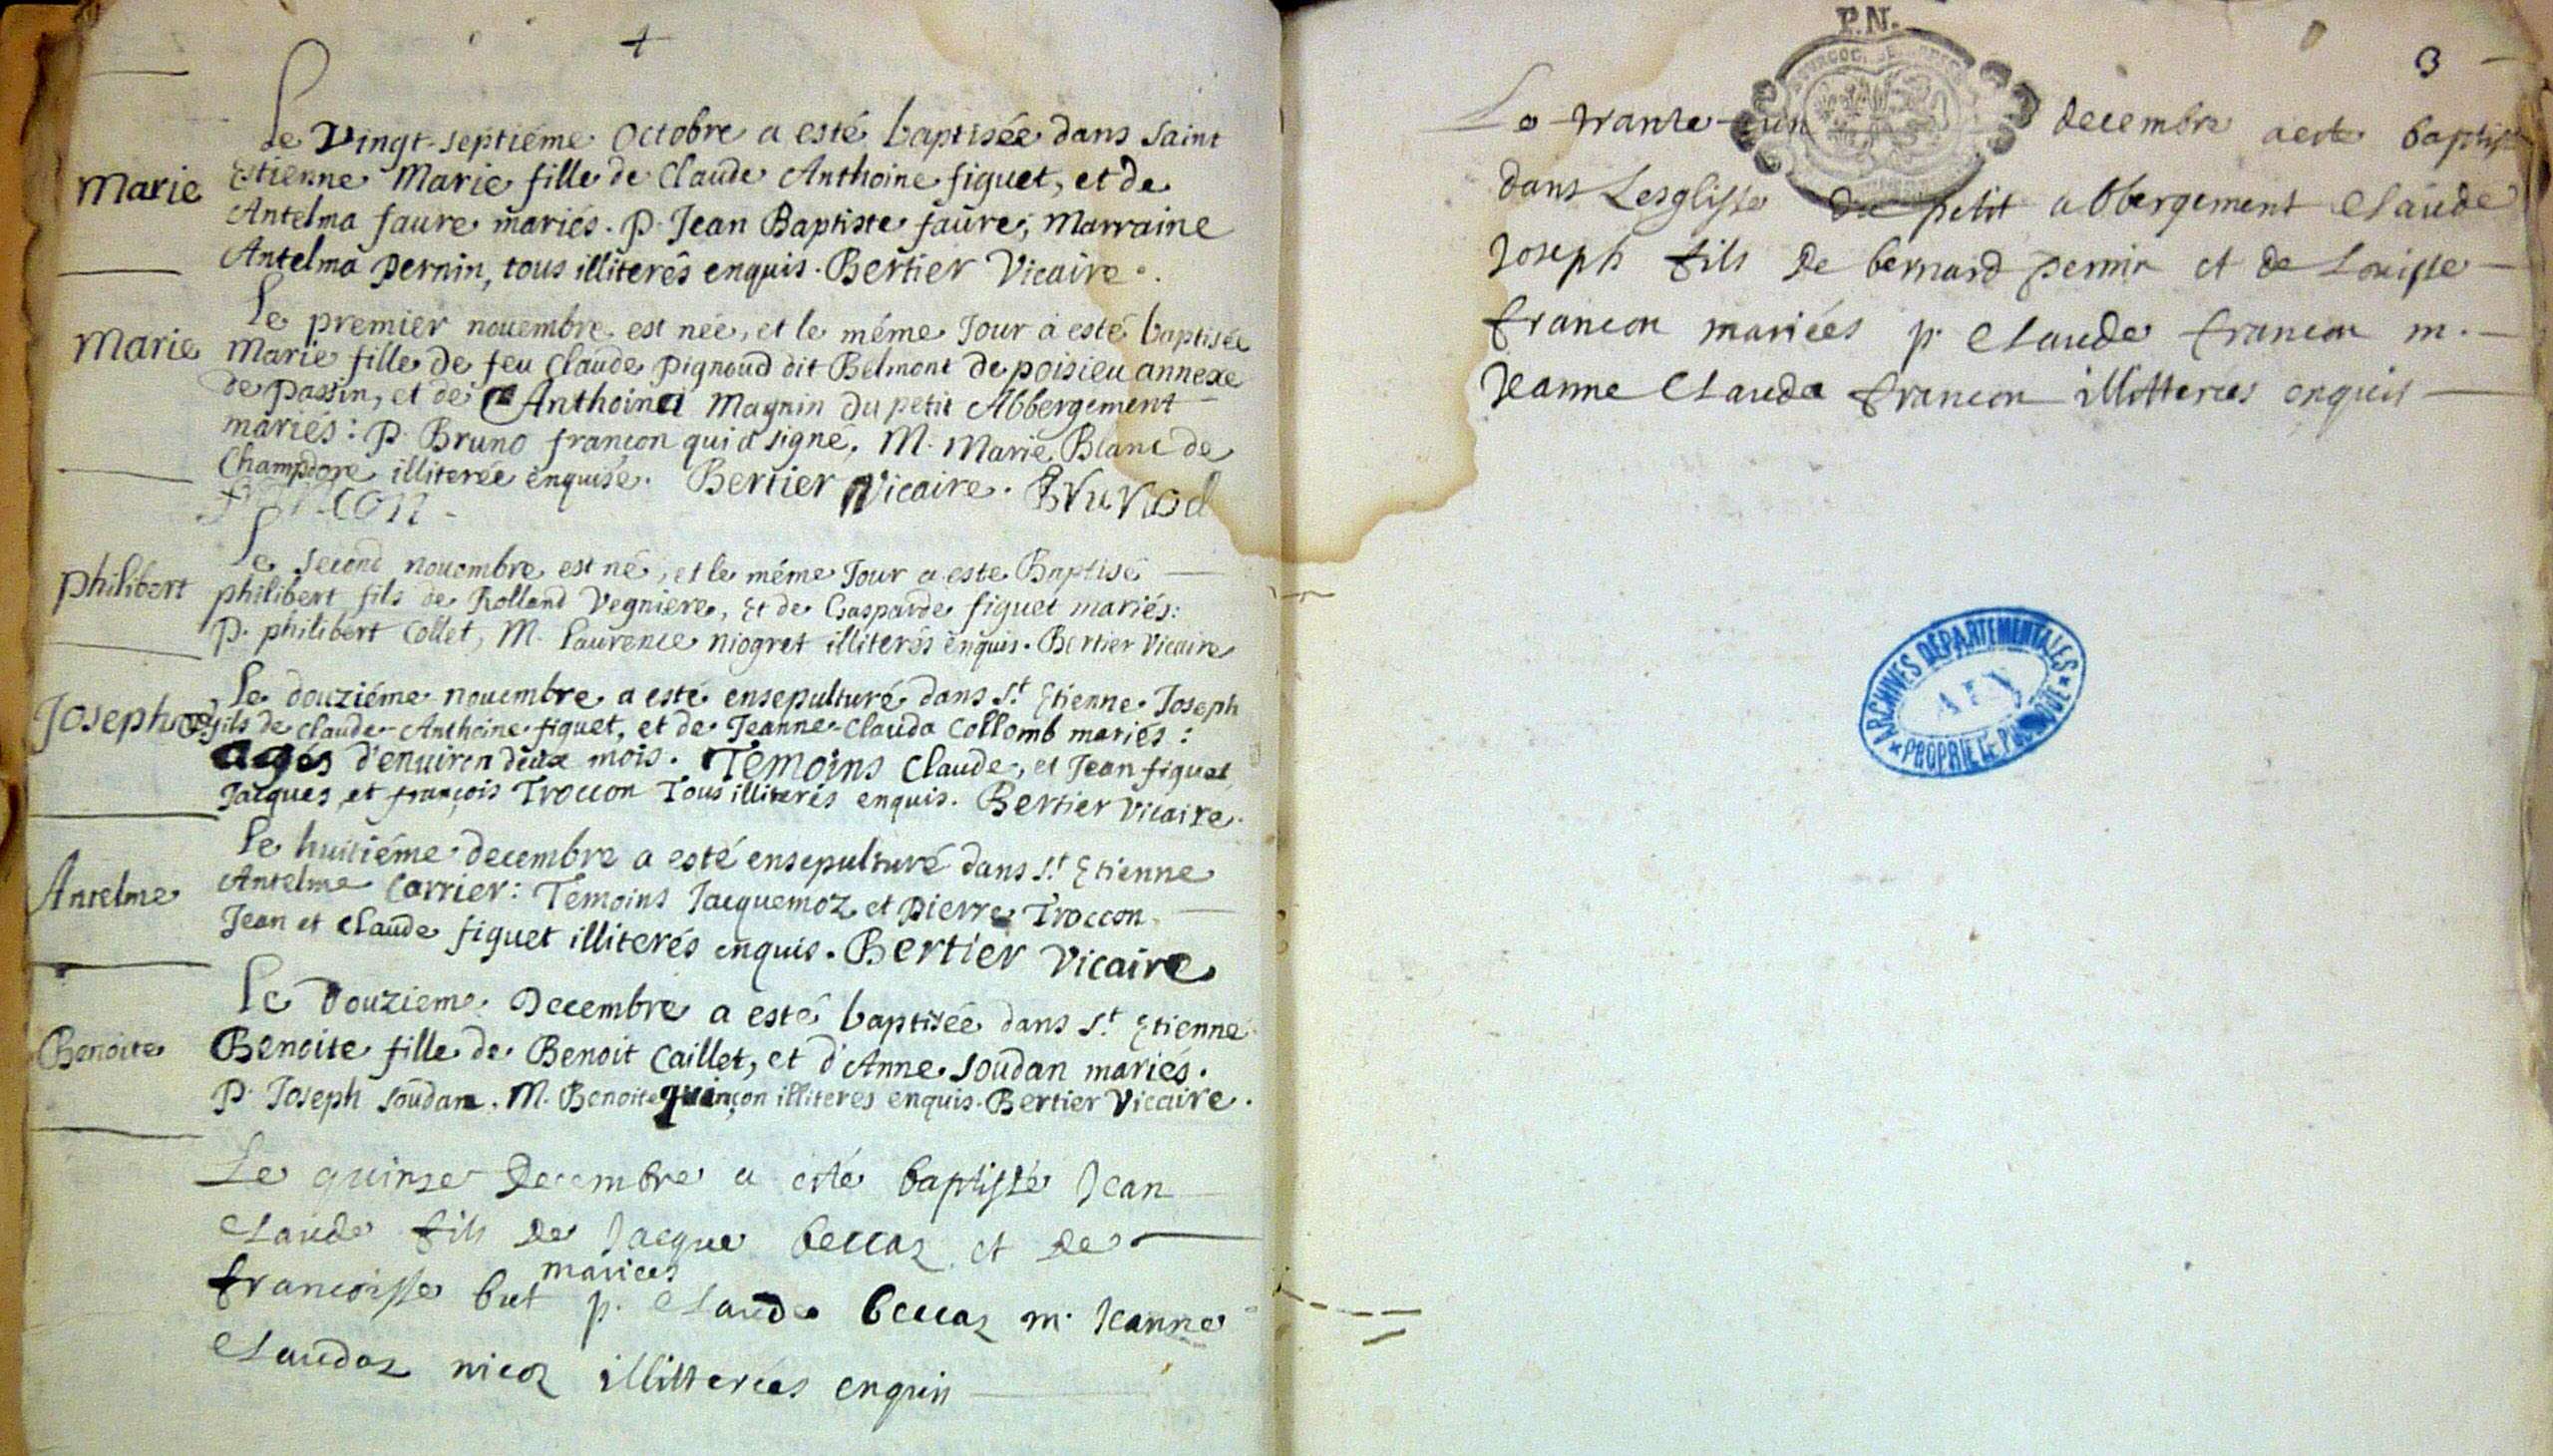 +
Le Vingt-septiéme Octobre a esté baptisée dans Saint
Marie
Estienne Marie fille de Claude Anthoine figuet, et de
Antelma faure mariés. P. Jean Baptiste faure, Marraine
Antelma Pernin, tous illiterés enquis. Bertier Vicaire.
Le premier nouembre est née, et le méme Jour a esté baptisée
Marie
Marie fille de feu Claude Pignoud dit Belmont de poisieu annexe
de Passin, et de Anthoina Magnin du petit Abbergement
mariés: P. Bruno françon qui a signé, M. Marie Blanc de
Champdore illiterée enquise. Bertier Vicaire.
françon
Le second nouembre est né, et le méme Jour a esté Baptisé
philibert
philibert fils de Rolland Vegniere, Et de Gasparde figuet mariés:
P. philibert Collet, M. Laurence niogret illiterés enquis. Bertier Vicaire
Le douziéme nouembre a esté ensepulturé dans St Etienne Joseph
Joseph
fils de Claude-Anthoine figuet, et de Jeanne-Clauda Collomb mariés:
agés d'enuiron deux mois. Temoins Claude, et Jean figuet,
Jacques et françois Troccon Tous illiterés enquis. Bertier Vicaire.
Le huitiéme decembre a esté ensepulturé dans St Etienne
Antelme
Antelme Carrier: Temoins Jacquemoz et Pierre Troccon
Jean et Claude figuet illiterés enquis. Bertier Vicaire
Le Douzieme Decembre a esté baptisée dans St Etienne
Benoite
Benoite fille de Benoit Caillet, et d'Anne Soudan mariés.
P. Joseph Soudan. M. Benoite quinçon illiteres enquis. Bertier Vicaire.
Le quinse Decembre a esté baptissé Jean
Claude fils de Jacque beccaz et de
mariees
francoisse but p. Claude beccaz m. Jeanne
Claudaz nicoz illitterées enquis
P.N.
3
Le trante un decembre aeste baptisse
dans Lesglisse du petit abbergement Claude
Joseph fils de bernard pernin et de Louisse
francon mariées p. Claude francon m.
Jeanne Clauda francon illitterées enquis
ARCHIVES DÉPARTEMENTALES
AIN
PROPRIÉTÉ PUBLIQUE